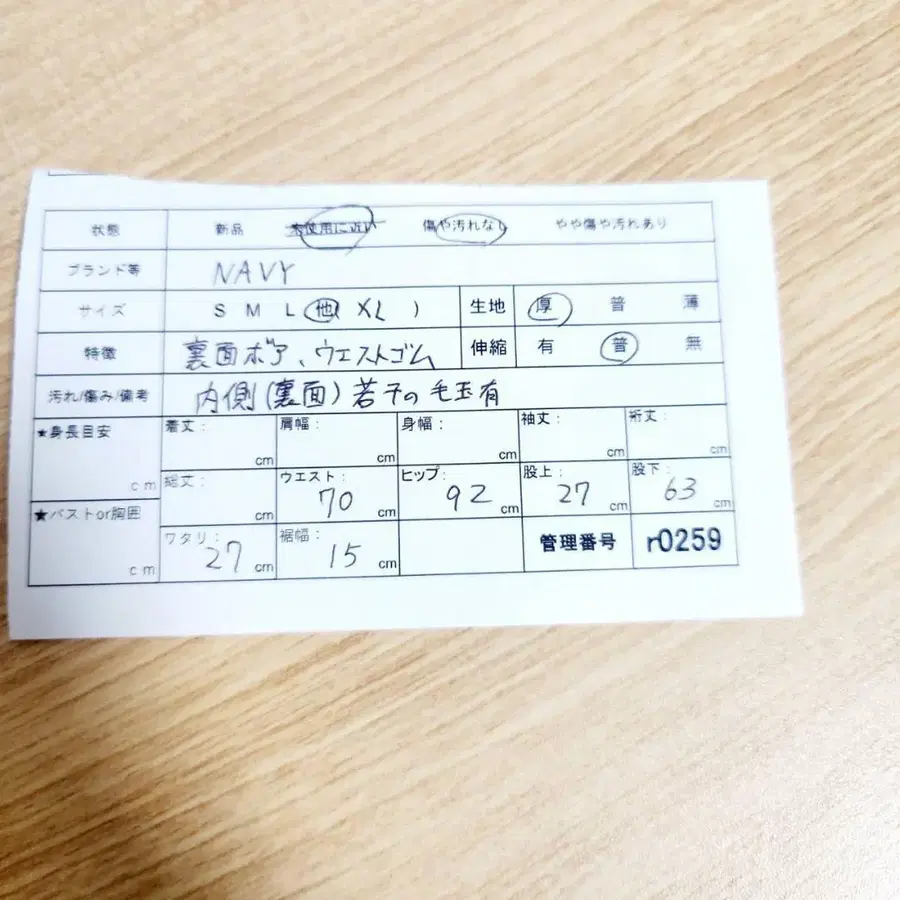 状態 新品 未使用に近い 傷や汚れなし やや傷や汚れあり
ブランド等 NAVY
サイズ S M L 他( XL ) 生地 厚 普 薄
特徴 裏面ボア、ウエストゴム 伸縮 有 普 無
汚れ/傷み/備考 内側(裏面)若干の毛玉有
★身長目安 cm 着丈: cm 肩幅: cm 身幅: cm 袖丈: cm 裄丈: cm
総丈: cm ウエスト: 70 cm ヒップ: 92 cm 股上: 27 cm 股下: 63 cm
★バストor胸囲 cm ワタリ: 27 cm 裾幅: 15 cm 管理番号 r0259